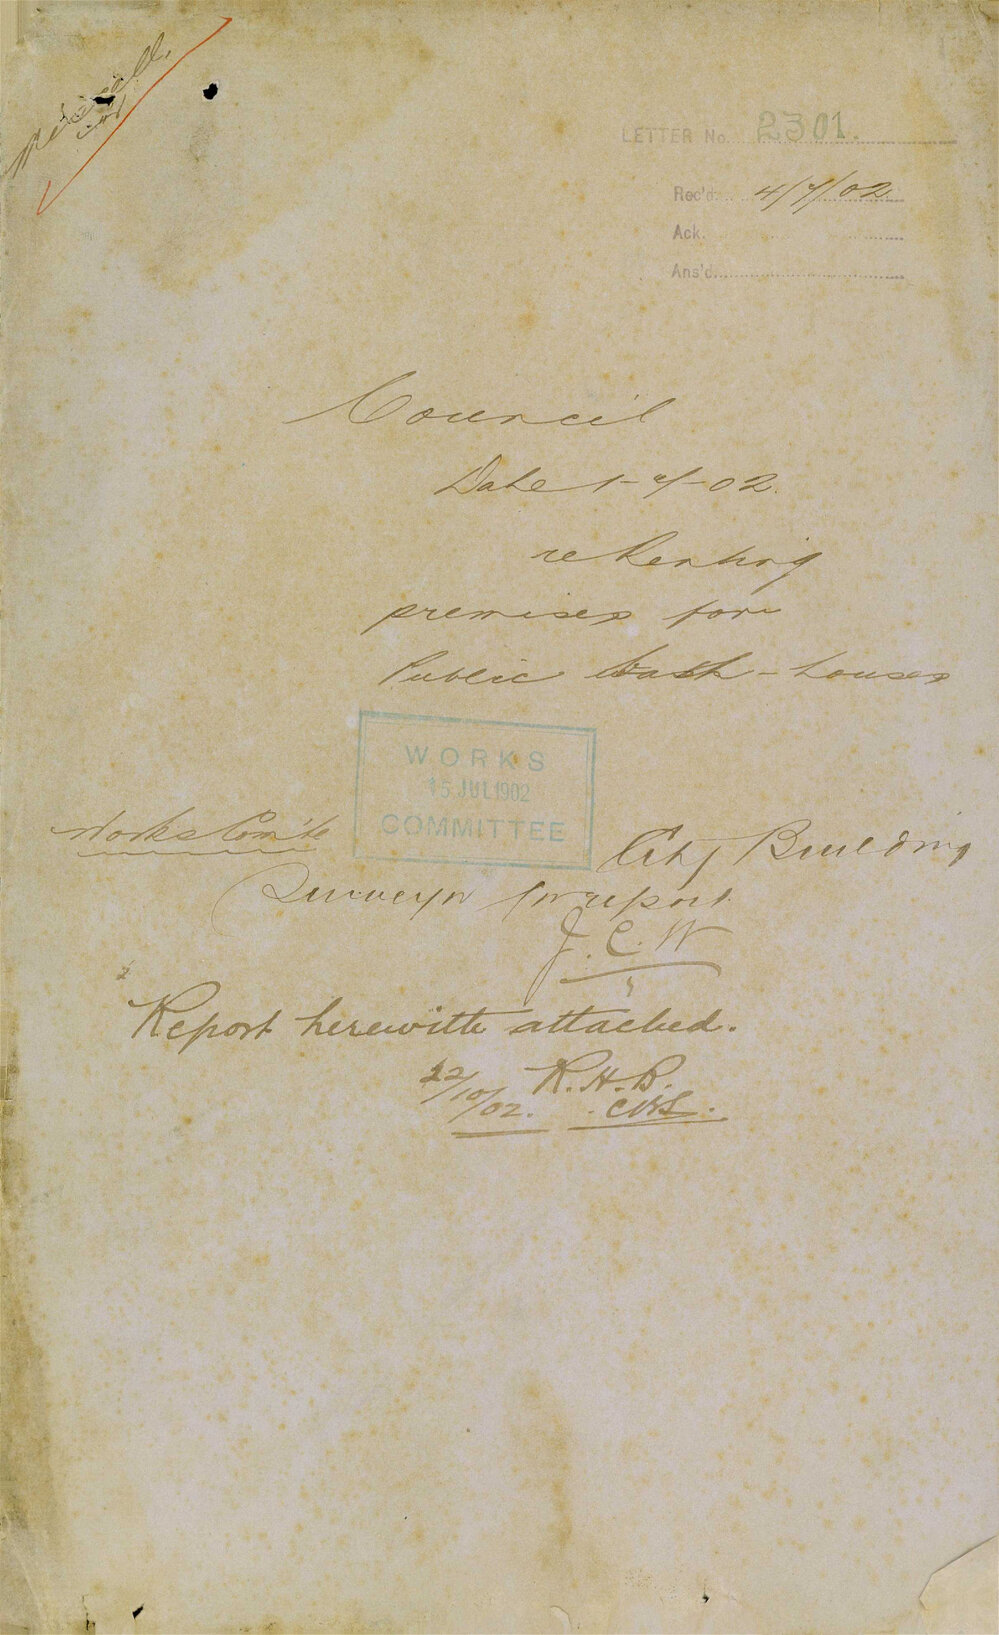 LETTER No. 2301.
Rec'd. 4/7/02
Ack.
Ans'd.
Council
Date 1-7-02.
re Renting
premises for
Public Wash-houses
WORKS
15 JUL 1902
COMMITTEE
Works Com'te
City Building
Surveyor for report
J. C. W
Report herewith attached.
22/10/02. R. H. B.
CBS.